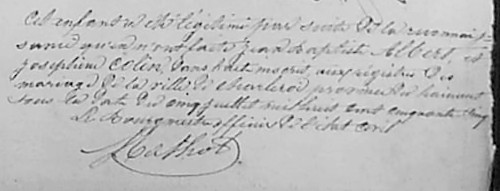 cet enfant a été légitimé par suite de la reconnais
sance qu'en n'ont faite Jean Baptiste Albert et
Joséphine Colin, dans l'acte inscrit aux régistres des
mariages de la ville de Charleroi province du hainaut
sous la date du cinq juillet mil huit cent cinquante cinq
Le Bourgmestre officier de l'état civil
Mathot